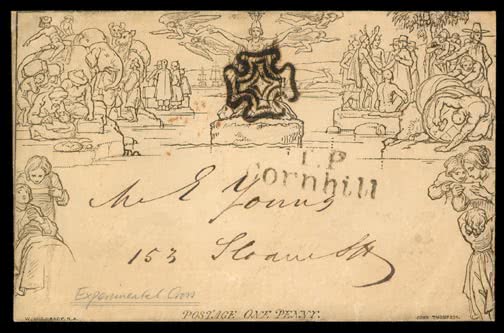 T.P
Cornhill
Mr E Young
153 Sloane St
Experimental Cross
POSTAGE ONE PENNY.
W. MULREADY, R.A.
JOHN THOMPSON.